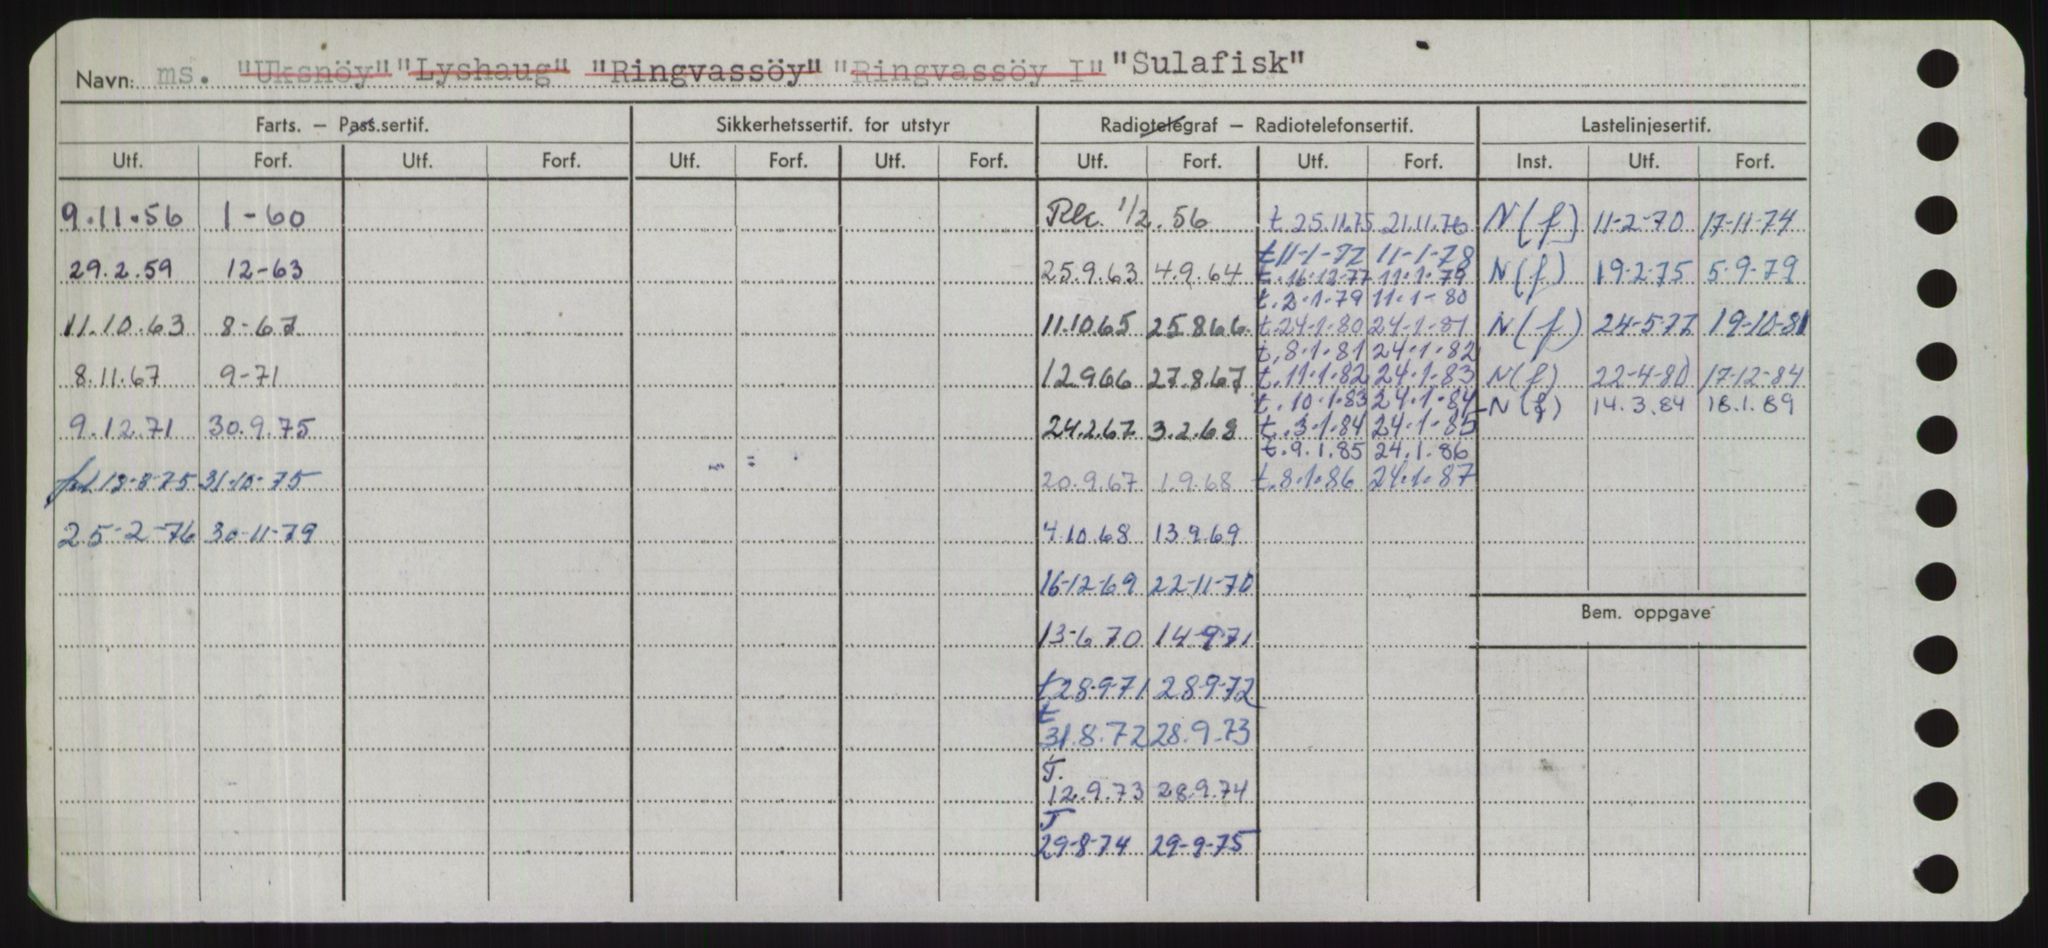 Navn: ms. "Uksnöy" "Lyshaug" "Ringvassöy" "Ringvassöy I" "Sulafisk"
Farts. – Pass.sertif. Sikkerhetssertif. for utstyr Radiotelegraf – Radiotelefonsertif. Lastelinjesertif.
Utf. Forf. Utf. Forf. Utf. Forf. Utf. Forf. Utf. Forf. Utf. Forf. Inst. Utf. Forf.
9.11.56 1-60 1/2.56 t.25.11.75 21.11.76 N(f) 11-2-70 17-11-74
t11-1-77 11-1-78
29.2.59 12-63 25.9.63 4.9.64 t.16-12-77 11.1.79 N(f) 19-2-75 5-9-79
t.2.1.79 11.1-80
11.10.63 8-67 11.10.65 25.8.66 t.24-1-80 24-1-81 N(f) 24-5-77 19-10-81
t.8.1.81 24.1.82
8.11.67 9-71 12.9.66 27.8.67 t.11.1.82 24.1.83 N(f) 22-4-80 17-12-84
t.10.1.83 24.1.84 N(f) 14.3.84 18.1.89
9.12.71 30.9.75 24.2.67 3.2.68 t.3.1.84 24.1-85
t.9.1.85 24.1.86
18-8-75 31-10-75 20.9.67 1.9.68 t.8.1.86 24.1.87
25-2-76 30-11-79 4.10.68 13.9.69
16-12-69 22-11-70
Bem. oppgave
13-6.70 14-9-71
t28-9-71 28-9-72
t
31.8.72 28.9.73
T.
12.9.73 28.9.74
T
29-8-74 29-9-75